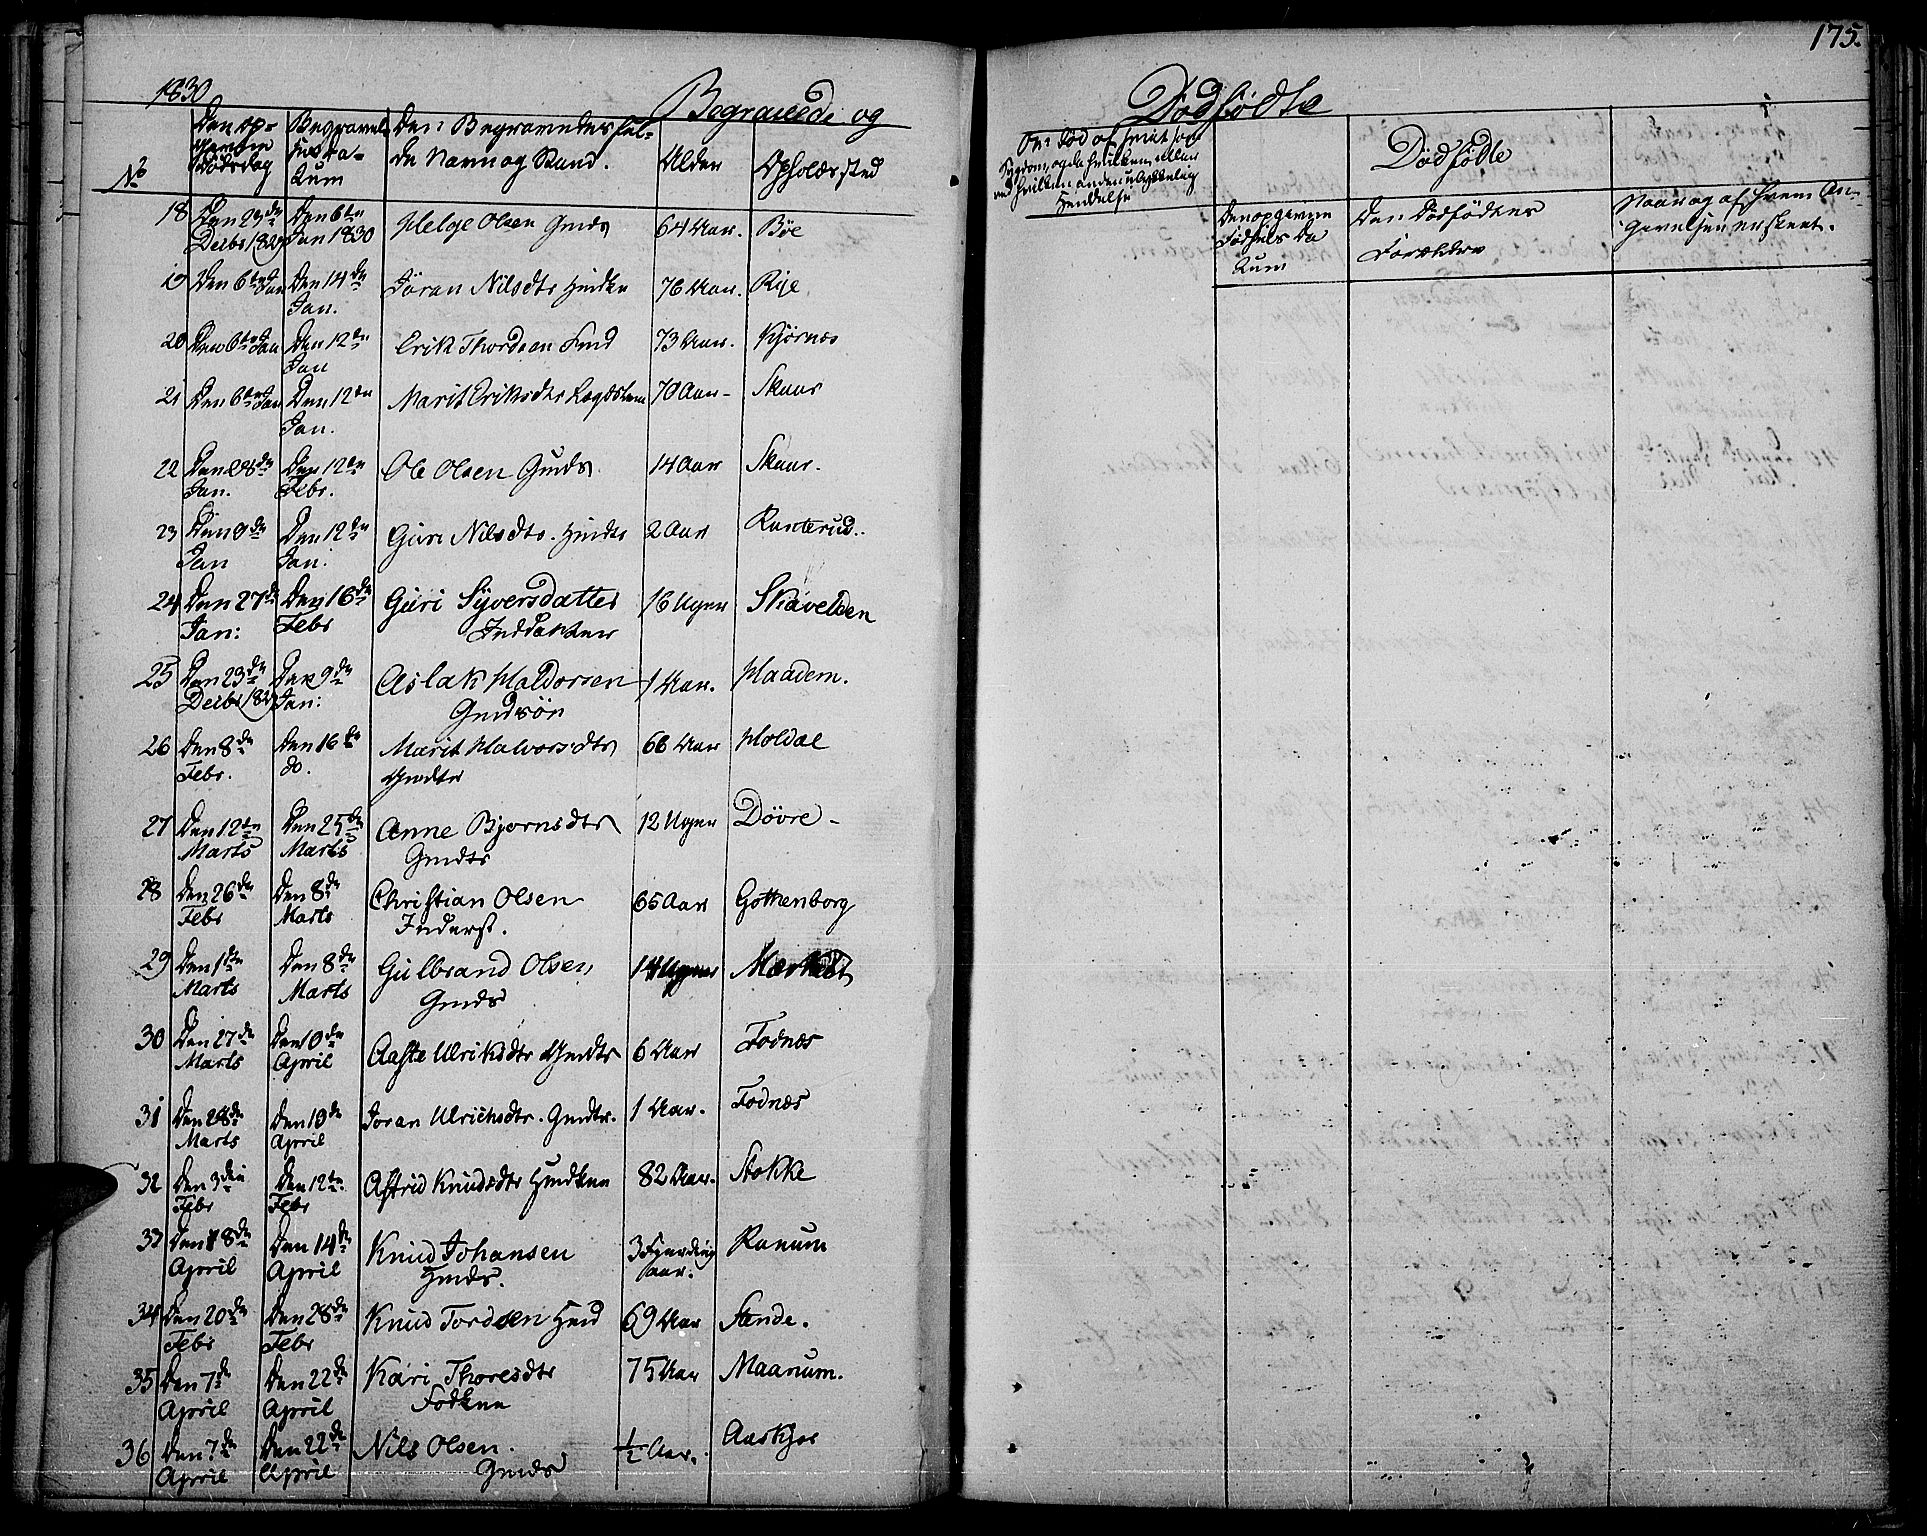 175.
1830
Begravede og
Dødfødte
No
Den op-
givne
Dødsdag
Begravel-
sesda-
tum
Den Begravedes ful-
de Navn og Stand.
Alder
Opholdssted
Dødfødte
Den opgivne
Fødsels Da
tum
Den Dødfødtes
Forældre
Naar og af hvem An-
givelsen er skeet.
18 Den 23de Den 6te Helge Olsen Gmds 64 Aar. Bøe
Decbr 1829 Jan 1830
19 Den 6te Jan Den 14de Jøran Nilsdtr 76 Aar. Rije
Jan.
20 Den 6te Jan Den 12te Erik Thordsen 73 Aar. Kjørnæs
Jan
21 Den 6te Jan Den 12te Marit Eriksdtr Lægdslem 70 Aar Skaar
Jan.
22 Den 28de Den 12te Ole Olsen Gmds. 14 Aar Skaar.
Jan. Febr.
23 Den 9de Den 12te Guri Nilsdtr. 2 Aar Ranterud.
Jan Jan.
24 Den 27de Den 16de Guri Syversdatter 16 Uger Skavelden
Jan: Febr Indst datter
25 Den 23de Den 9de Aslak Haldorsen 1 Aar. Haadem.
Decbr 1829 Jan: Gmdsøn
26 Den 8de Den 16de Marit Halvorsdtr 66 Aar Holdal
Febr. do. Gmdtr
27 Den 12te Den 25de Anne Bjørnsdtr 12 Uger Døvre
Marts Marts Gmdtr
28 Den 26de Den 8de Christian Olsen 65 Aar Gothenborg
Febr Marts Inderst.
29 Den 1ste Den 8de Gulbrand Olsen 14 Uger
Marts Marts Gmds
30 Den 27de Den 10de Aaste Ulriksdtr Gmdtr 6 Aar Fodnæs
Marts April
31 Den 28de Den 10de Joran Ulrichsdtr. Gmdtr. 1 Aar. Fodnæs
Marts April
32 Den 3die Den 12te Astrid Knudsdtr 82 Aar. Stokke
Febr Febr
33 Den 8de Den 14de Knud Johansen 3 Fjerding Ranum
April April Hmds. aar.
34 Den 20de Den 28de Knud Tordsen 69 Aar Stende.
Febr Febr
35 Den 7de Den 22de Kari Thoresdtr 75 Aar Maanum.
April April
36 Den 7de Den 22de Nils Olsen. ½ Aar. Aaskjer
April April Gmds